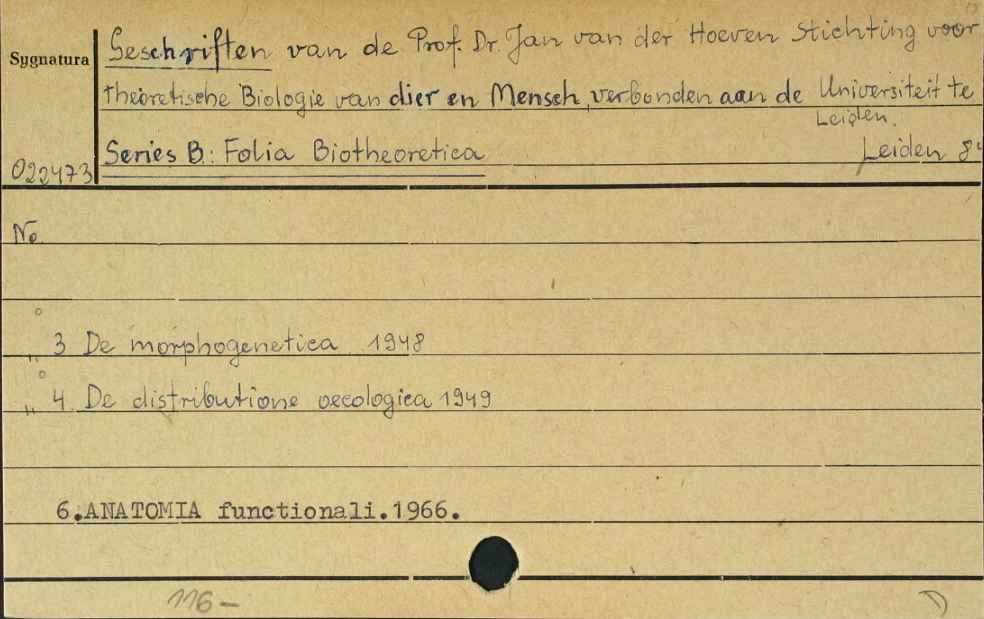 Sygnatura
Geschriften van de Prof. Dr. Jan van der Hoeven Stichting voor
theoretische Biologie van dier en Mensch, verbonden aan de Universiteit te
Leiden.
Series B: Folia Biotheoretica Leiden 8°
022473
No
" 3 De morphogenetica 1948
" 4. De distributione oecologica 1949
6.ANATOMIA functionali.1966.
116-